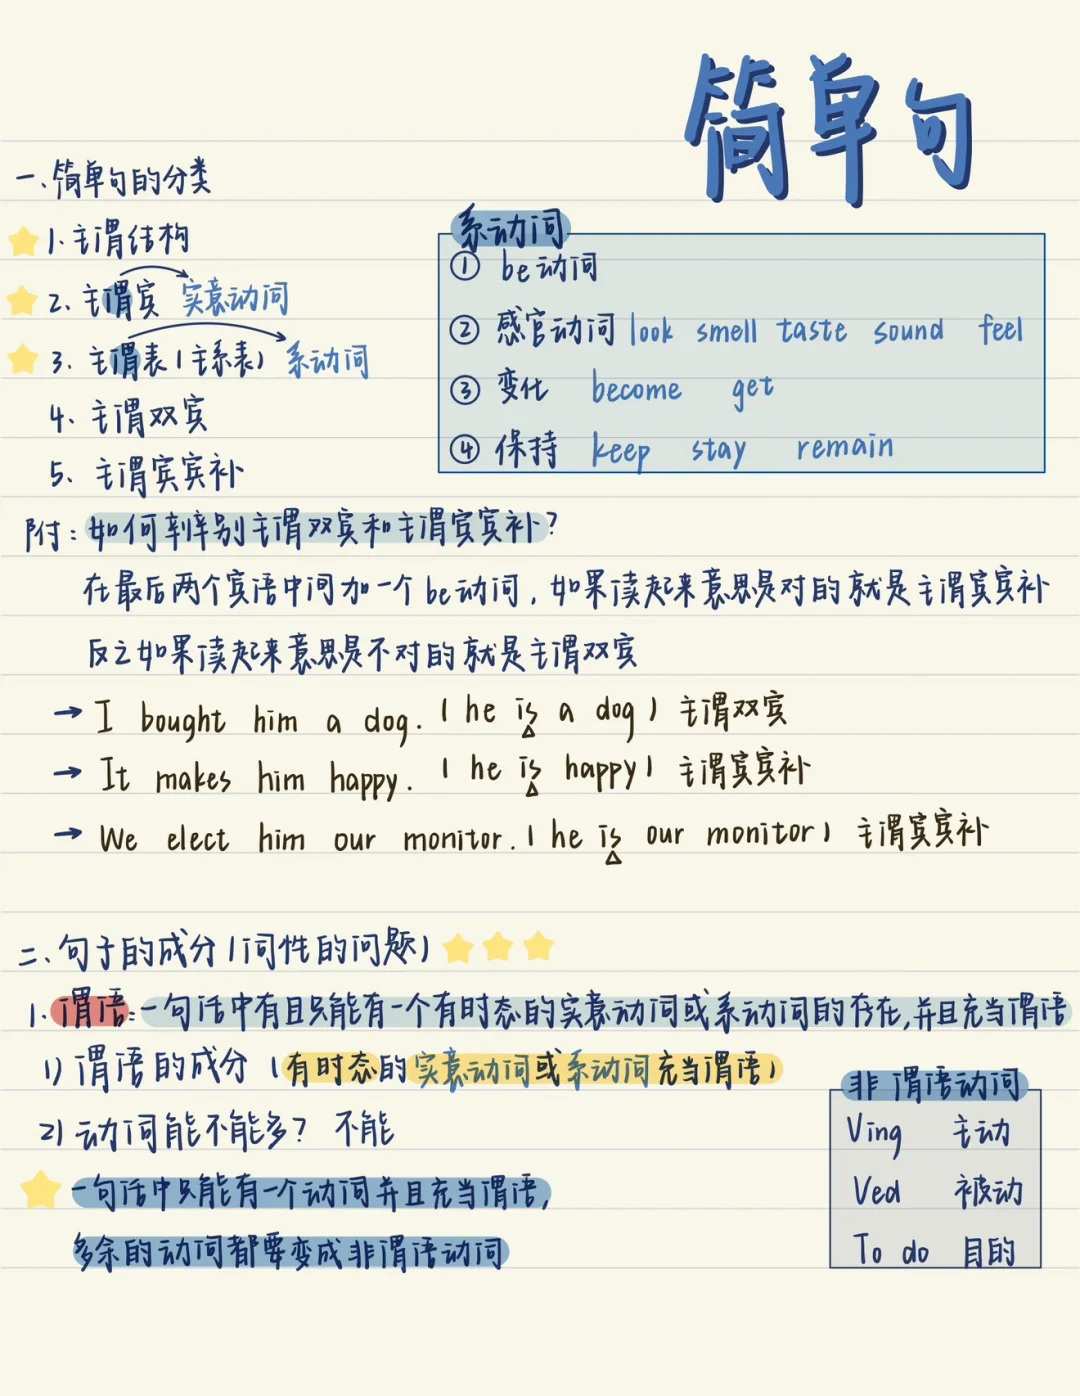 简单句
一、简单句的分类
1. 主谓结构
2、主谓宾 实意动词
3. 主谓表(主系表) 系动词
4、主谓双宾
5、主谓宾宾补
系动词
① be动词
② 感官动词 look smell taste sound feel
③ 变化 become get
④ 保持 keep stay remain
附:如何辨别主谓双宾和主谓宾宾补?
在最后两个宾语中间加一个be动词,如果读起来意思是对的就是主谓宾宾补
反之如果读起来意思是不对的就是主谓双宾
→ I bought him a dog. (he is a dog) 主谓双宾
→ It makes him happy. (he is happy) 主谓宾宾补
→ We elect him our monitor. (he is our monitor) 主谓宾宾补
二、句子的成分(词性的问题)
1. 谓语:一句话中有且只能有一个有时态的实意动词或系动词的存在,并且充当谓语
1) 谓语的成分(有时态的实意动词或系动词充当谓语)
2) 动词能不能多? 不能
一句话中只能有一个动词并且充当谓语,
多余的动词都要变成非谓语动词
非谓语动词
Ving 主动
Ved 被动
To do 目的